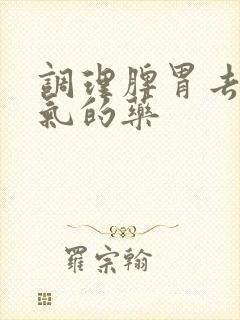 調理脾胃去
氣的藥
羅宗翰